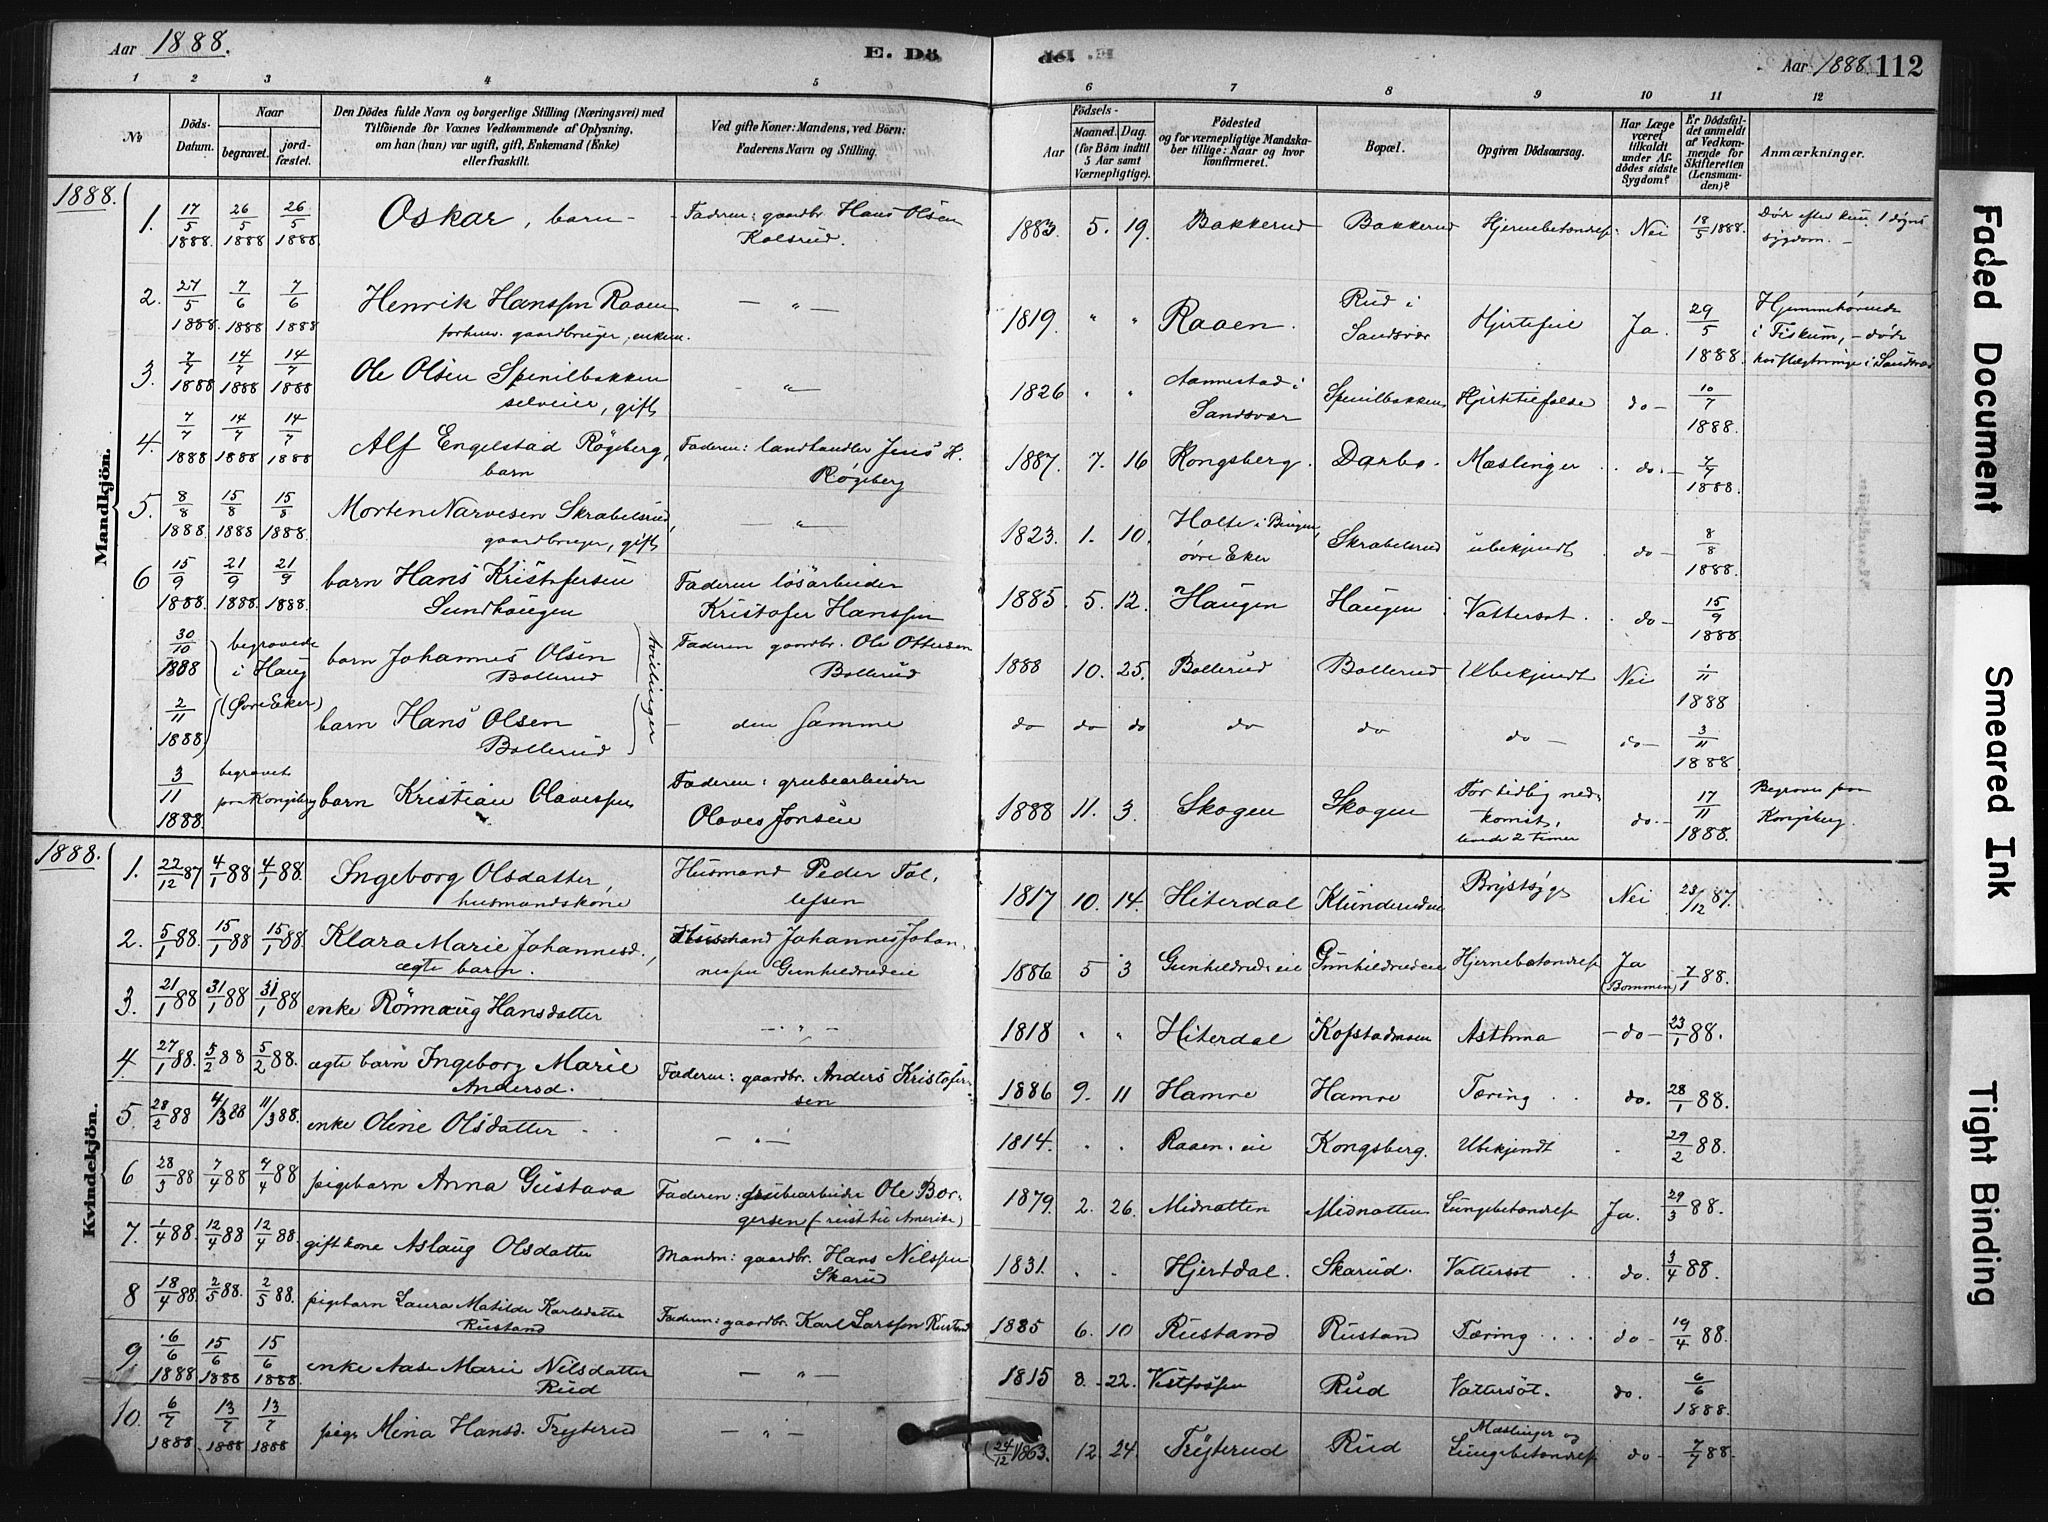 Aar 1888.
E. Dö
de. E.
Aar 1888. 112
1 2 3 4 5 6 7 8 9 10 11 12
No
Döds-
Datum.
Naar
begravet.
jord-
fæstet.
Den Dödes fulde Navn og borgerlige Stilling (Næringsvei) med
Tilföiende for Voxnes Vedkommende af Oplysning,
om han (hun) var ugift, gift, Enkemand (Enke)
eller fraskilt.
Ved gifte Koner: Mandens, ved Börn:
Faderens Navn og Stilling.
Födsels-
Aar
Maaned. Dag.
(for Börn indtil
5 Aar samt
Værnepligtige).
Födested
og for værnepligtige Mandska-
ber tillige: Naar og hvor
konfirmeret.
Bopæl.
Opgiven Dödsaarsag.
Har Læge
været
tilkaldt
under Af-
dödes sidste
Sygdom?
Er Dödsfal-
det anmeldt
af Vedkom-
mende for
Skifteretten
(Lensman-
den)?
Anmærkninger.
1888.
Mandkjön.
1. 17/5 1888 26/5 1888 26/5 1888. Oskar, barn - Faderen: gaardbr. Hans Olsen
Kolsrud. 1883. 5. 19. Bakkerud Bakkerud Hjernebetændelse Nei 18/5 1888. Död efter kun 1 døgns
sygdom. -
2. 27/5 1888. 7/6 1888 7/6 1888 Henrik Hanssen Raaen - " - 1819. " " Raaen. Rud i
Sandsvær Hjertefeil Ja. 29/5 1888. Hjemmehørende
i Fiskum, - døde
forhenv. gaardbruger, enkem. hos slægtninge i Sandsvær
3. 7/7 1888 14/7 1888 14/7 1888 Ole Olsen Spenilbakken
selveier, gift - " - 1826 " " Aannestad i
Sandsvær Spenilbakken Hjertefeil do - 10/7 1888.
4. 7/7 1888 14/7 1888 14/7 1888 Alf Engelstad Røgeberg,
barn Faderen: landhandler Jens H.
Røgeberg 1887. 7. 16 Kongsberg. Darbo. Mæslinger do - 7/7 1888.
5. 8/8 1888. 15/8 1888 15/8 1888. Morten Narvesen Skrabelsrud,
gaardbruger, gift - " - 1823. 1. 10. Holte i Bingen,
øvre Eker Skrabelsrud ubekjendt do - 8/8 1888.
6 15/9 1888. 21/9 1888. 21/9 1888. barn Hans Kristofersen
Sundhaugen Faderen løsarbeider
Kristofer Hanssen 1885. 5. 12. Haugen Haugen Vattersot. do - 15/9 1888.
30/10 1888 begravede
i Haug
(Øvre Eker) barn Johannes Olsen
Bollerud tvillinger Faderen gaardbr. Ole Ottersen
Bollerud 1888 10. 25. Bollerud Bollerud Ubekjendt Nei 1/11 1888
2/11 1888. barn Hans Olsen
Bollerud - den samme do do do do do do - do - 3/11 1888.
3/11 1888. begravet
paa Kongsberg barn Kristian Olavessen Faderen: grubearbeider
Olaves Jonsen 1888 11. 3. Skogen Skogen For tidlig ned-
komst,
levede 2 timer do. - 17/11 1888. Begraves paa
Kongsberg.
1888.
Kvindekjön.
1. 22/12 87 4/1 88 4/1 88. Ingeborg Olsdatter,
husmandskone Husmand Peder Tol-
lefsen 1817 10. 14. Hiterdal Klunderudeie Brystsyge Nei 23/12 87.
2. 5/1 88. 15/1 88 15/1 88. Klara Marie Johannesd.,
ægte barn. Husmand Johannes Johan-
nessen Gunhildrudeie 1886 5 3 Gunhildrud-eie Gunhildrudeie Hjernebetændelse Ja
(Bommen) 7/1 88.
3. 21/1 88 31/1 88 31/1 88 enke Rønnaug Hansdatter - " - 1818 " " Hiterdal Kopstadmoen Asthma - do - 23/1 88.
4 27/1 88. 5/2 88 5/2 88. ægte barn Ingeborg Marie
Andersd. Faderen: gaardbr. Anders Kristofer-
sen 1886 9. 11 Hamre Hamre Tæring do. 28/1 88.
5. 28/2 88 4/3 88 11/3 88. enke Oline Olsdatter - " - 1814. " " Raaen-eie Kongsberg. Ubekjendt 29/2 88.
6 28/3 88 7/4 88 7/4 88 pigebarn Anna Gustava Faderen: grubearbeider Ole Bor-
gersen (reist til Amerika) 1879 2. 26. Midnatten Midnatten Lungebetændelse Ja. 29/3 88.
7. 1/4 88. 12/4 88 12/4 88. gift kone Aslaug Olsdatter Manden: gaardbr. Hans Nilssen
Skarud 1831. " " Hjertdal. Skarud. Vattersot do. 3/4 88.
8 18/4 88. 2/5 88. 2/5 88. pigebarn Laura Matilde Karlsdatter
Rustand Faderen: gaardbr. Karl Larssen Rustand 1885 6. 10 Rustand Rustand Tæring do - 19/4 88.
9. 6/6 1888 15/6 1888 15/6 1888. enke Aase Marie Nilsdatter
Rud - " - 1815 8. 22. Vestfossen Rud Vattersot. do. 6/6 1888.
10. 6/7 1888. 13/7 1888 13/7 1888 pige Mina Hansd. Trÿterud - " - (24/12) 1863. 12. 24. Trÿterud Rud Mæslinger og
Lungebetændelse do - 7/7 88.
Faded Document
Smeared Ink
Tight Binding